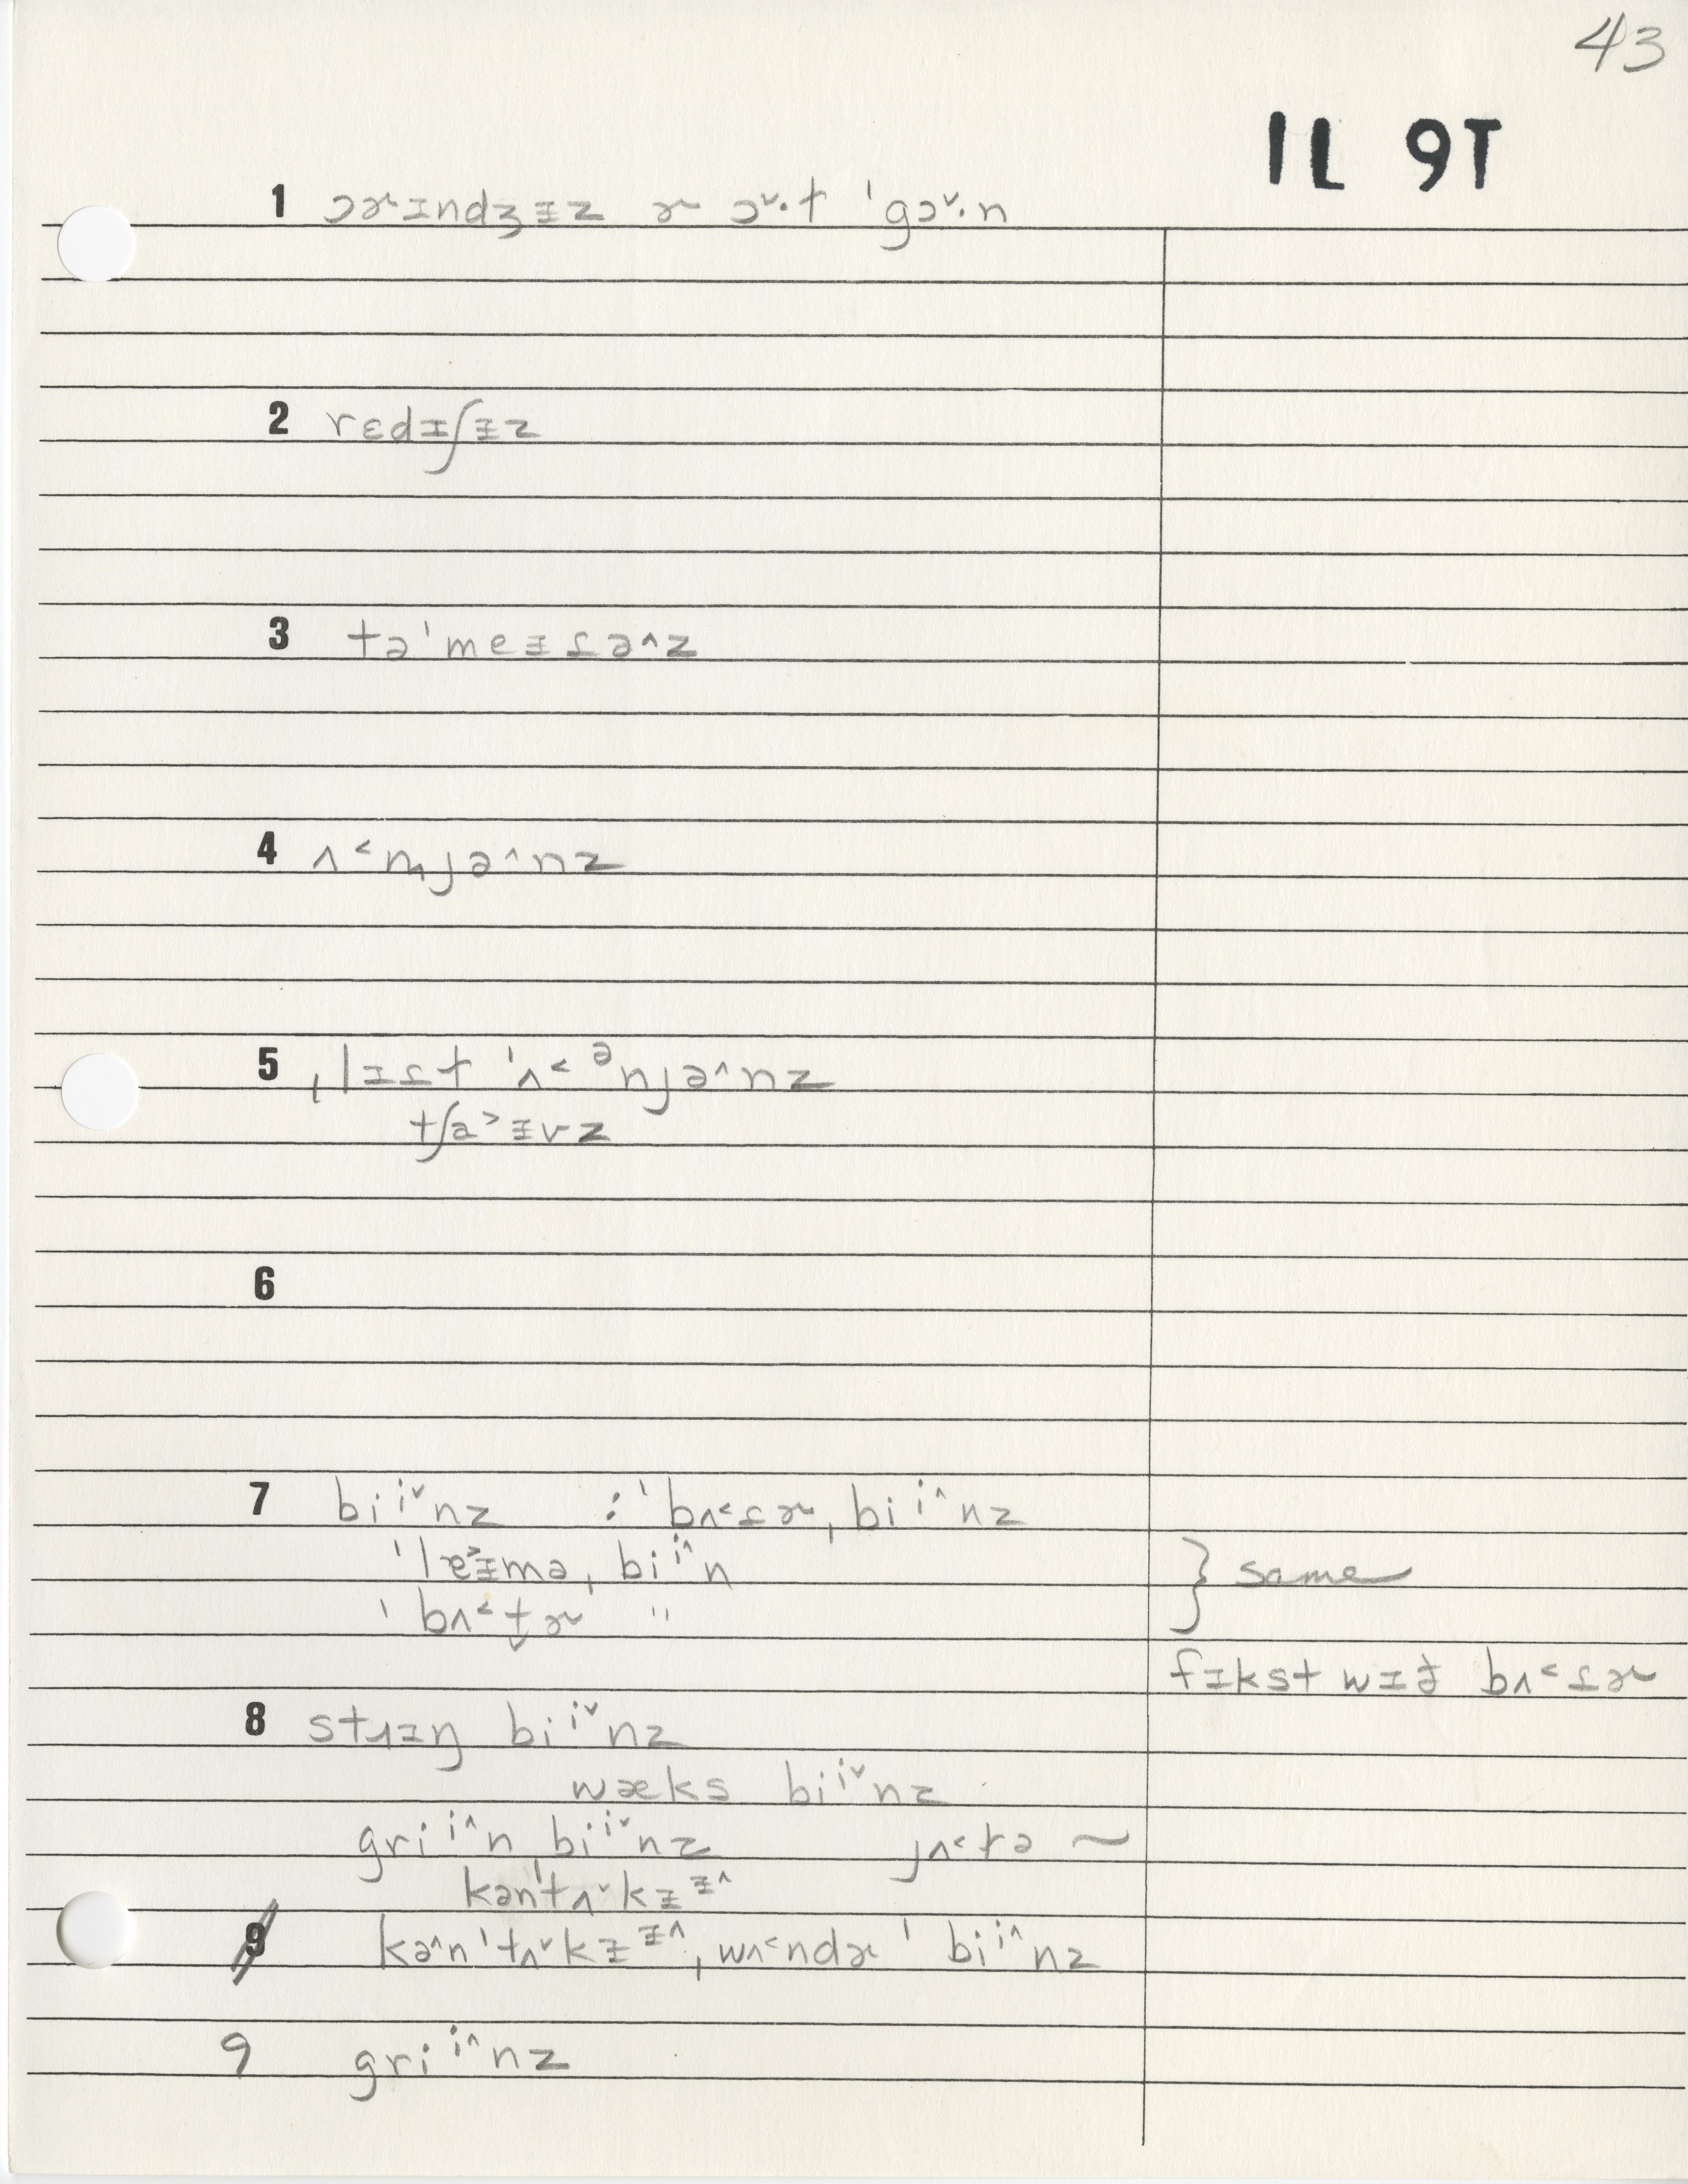 43
IL 9T
1 ɔɚɪndʒɨz ɚ ɔ˅·t ˈgɔ˅·n
2 rɛdɪʃɨz
3 təˈmeɨɾə^z
4 ʌ˂njə^nz
5 ˌlɪɾt ˈʌ˂ᵊnjə^nz
tʃa˃ɨvz
6
7 biⁱ˅nz : ˈbʌ˂ɾɚˌbiⁱ^nz
ˈlæ˃ɨməˌbiⁱ^n
ˈbʌ˂t̬ɚ "
} same
fɪkst wɪð bʌ˂ɾɚ
8 stɹɪŋ biⁱ˅nz
wæks biⁱ˅nz
griⁱ^n biⁱ˅nz jʌ˂t̬ə ~
kənˈtʌ˅kɨᶤ^
9 kə^nˈtʌ˅kɨᶤ^ˌwʌ˂ndɚˈbiⁱ^nz
9 griⁱ^nz